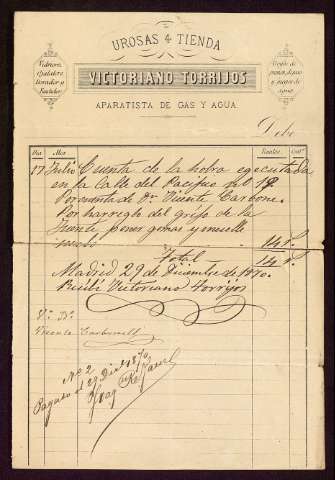 UROSAS 4 TIENDA
Vidriero,
Ojalatero,
Dorador y
Fundidor
VICTORIANO TORRIJOS
APARATISTA DE GAS Y AGUA
Debe
Dia Mes Reales Cent.s
17 Julio Cuenta de la hobra egecutada
en la Calle del Pacifico n.o 19
Por cuenta de D.n Viente Carbone.
Por harreglo del grifo de la
fuente poner gomas y muelle
14
Total 14
Madrid 29 de Diciembre de 1870.
Recibi Victoriano Torrijos
V.o B.o
Vicente Carbonell
N.o 2
Pagado el 29 Dic.e 1870